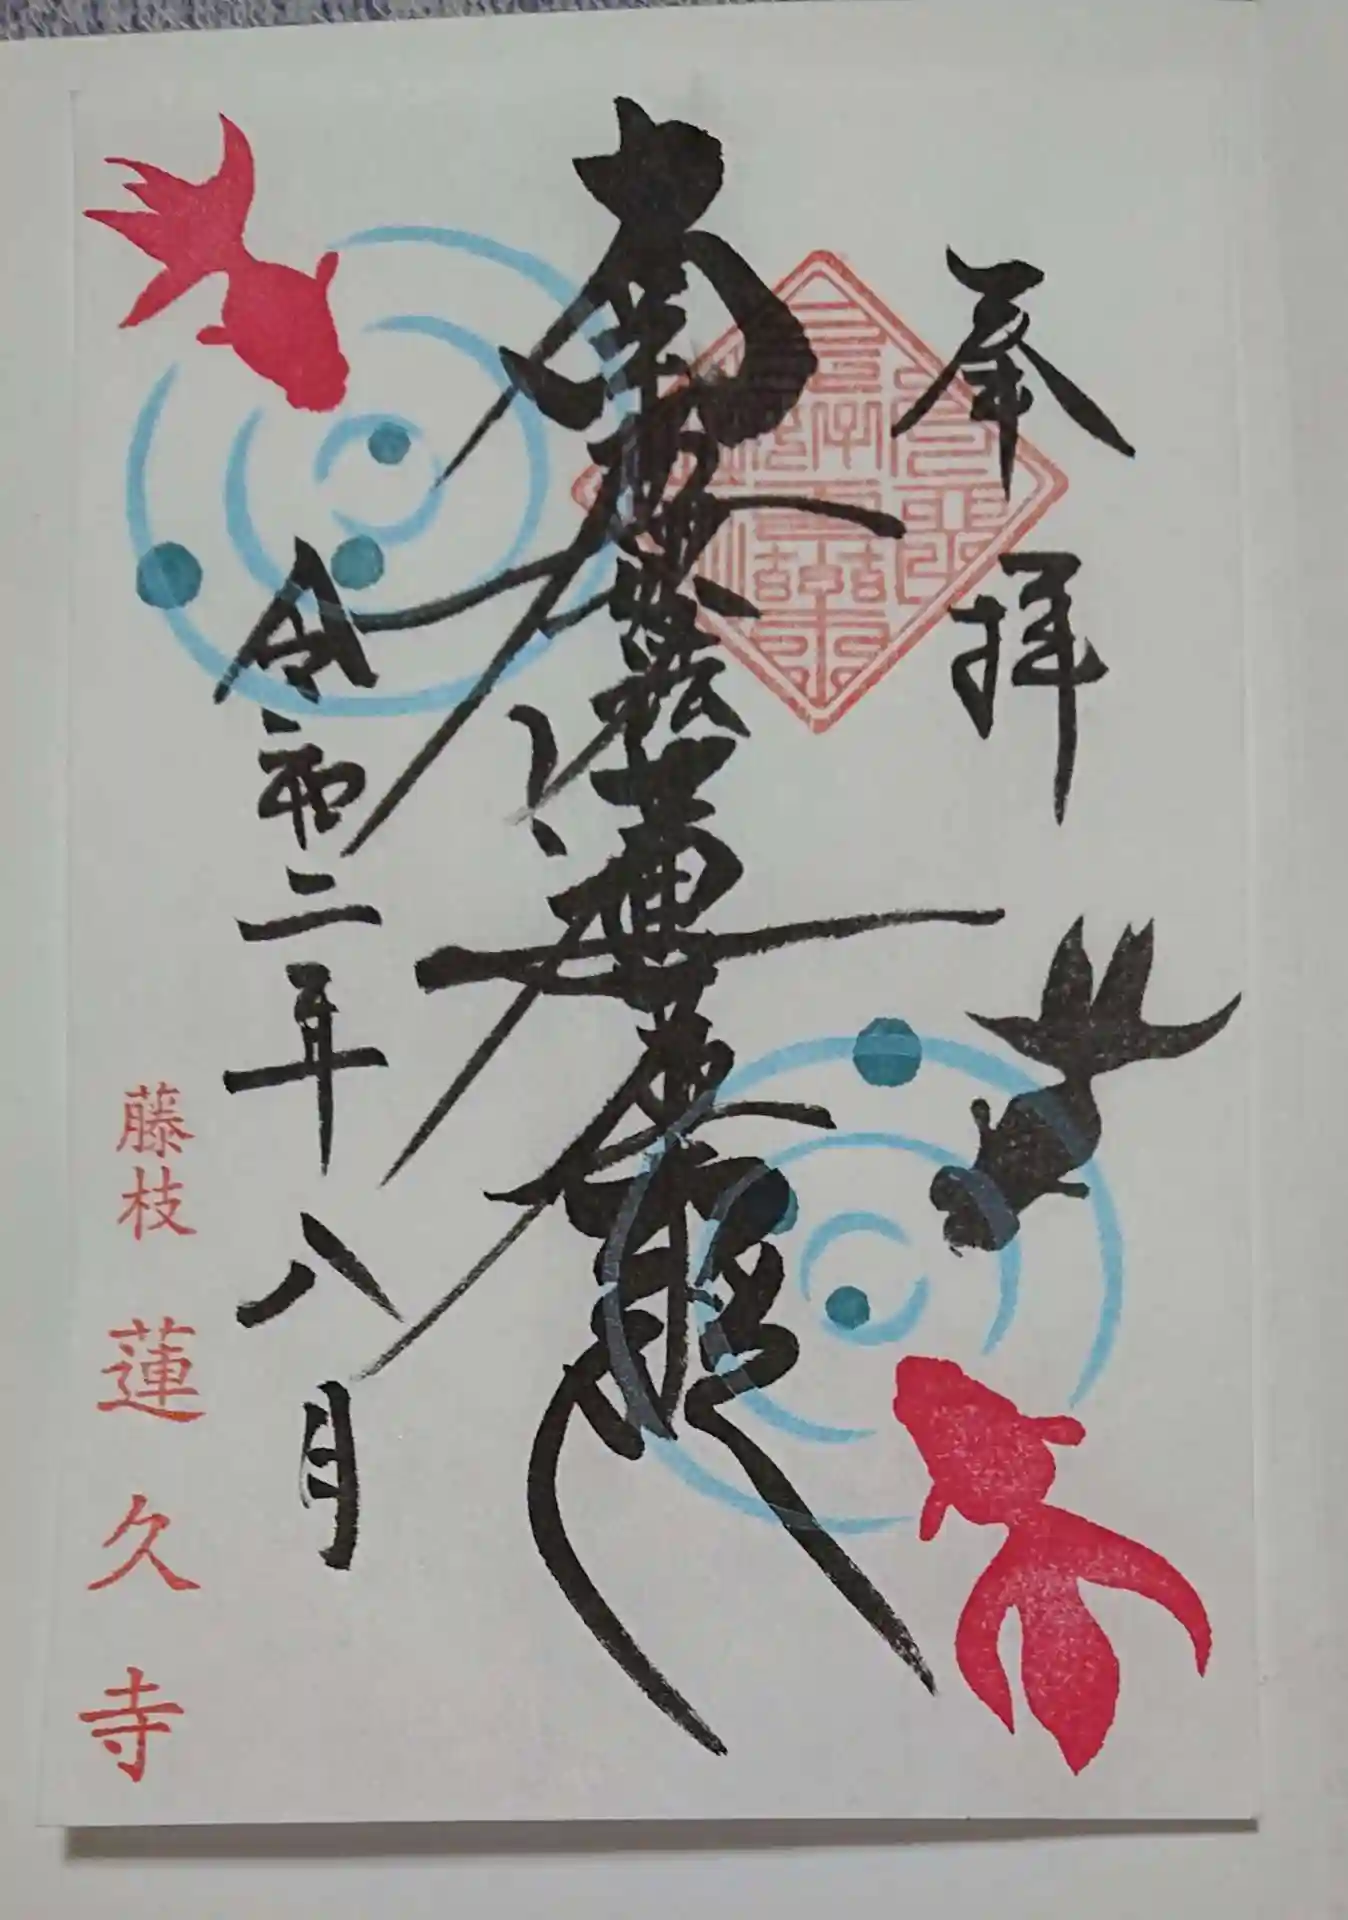 奉拝
南無妙法蓮華経
令和二年八月
藤枝 蓮久寺